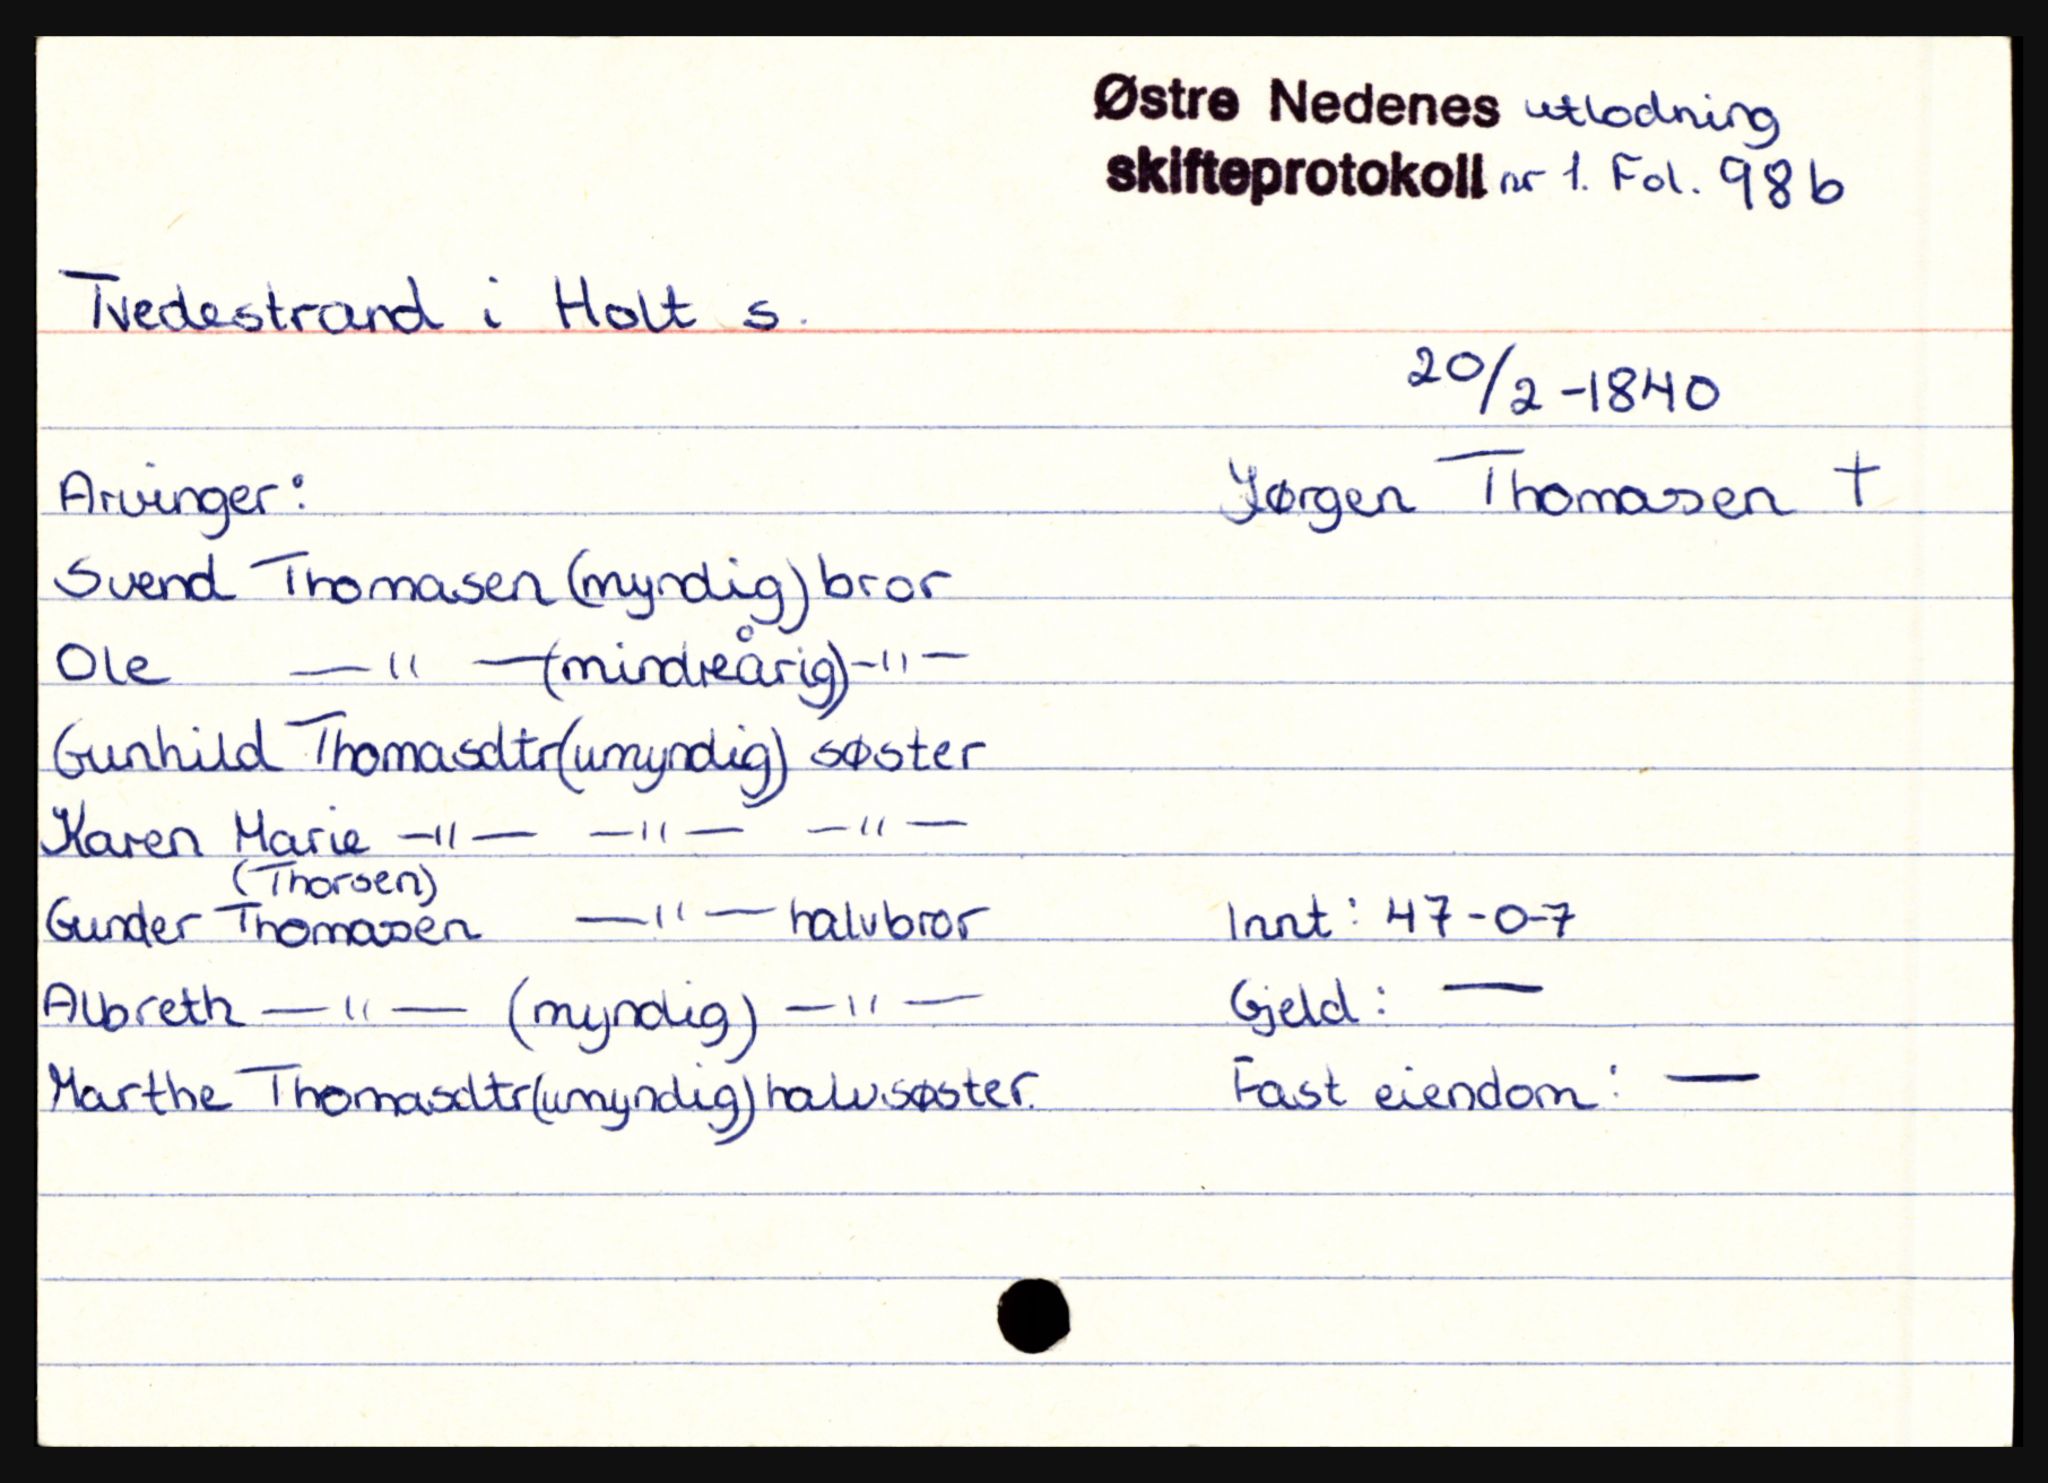 Østre Nedenes utlodning
skifteprotokoll nr 1. Fol. 98 b
Tvedestrand i Holt s.
20/2 -1840
Arvinger:
Jørgen Thomasen †
Svend Thomasen (myndig) bror
Ole —"— (mindreårig) —"—
Gunhild Thomasdtr (umyndig) søster
Karen Marie —"— —"— —"—
(Thorsen)
Gunder Thomasen —"— halvbror
Innt: 47-0-7
Albreth —"— (myndig) —"—
Gjeld: —
Marthe Thomasdtr (umyndig) halvsøster.
Fast eiendom: —